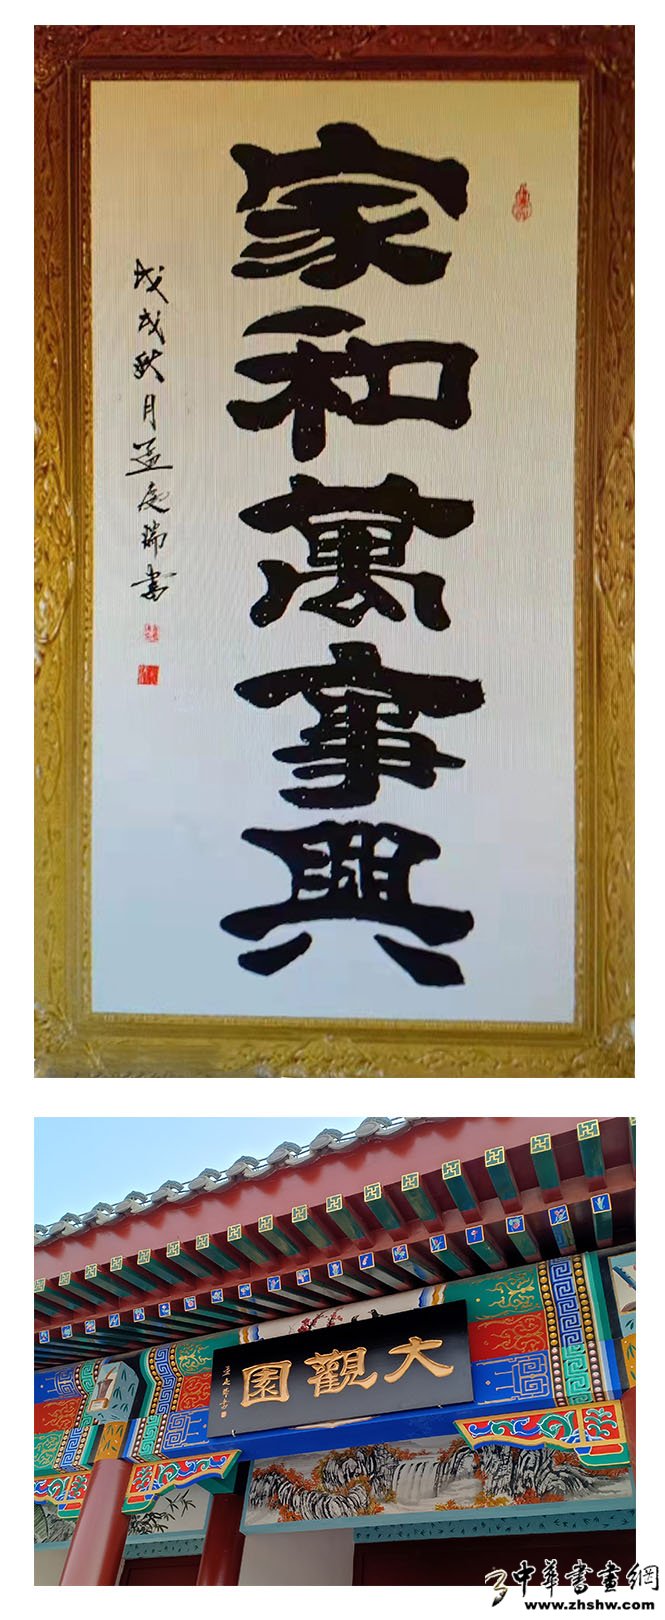 家和萬事興
戊戌秋月孟庆瑞書
大觀園
孟庆瑞書
中華書畫網
www.zhshw.com